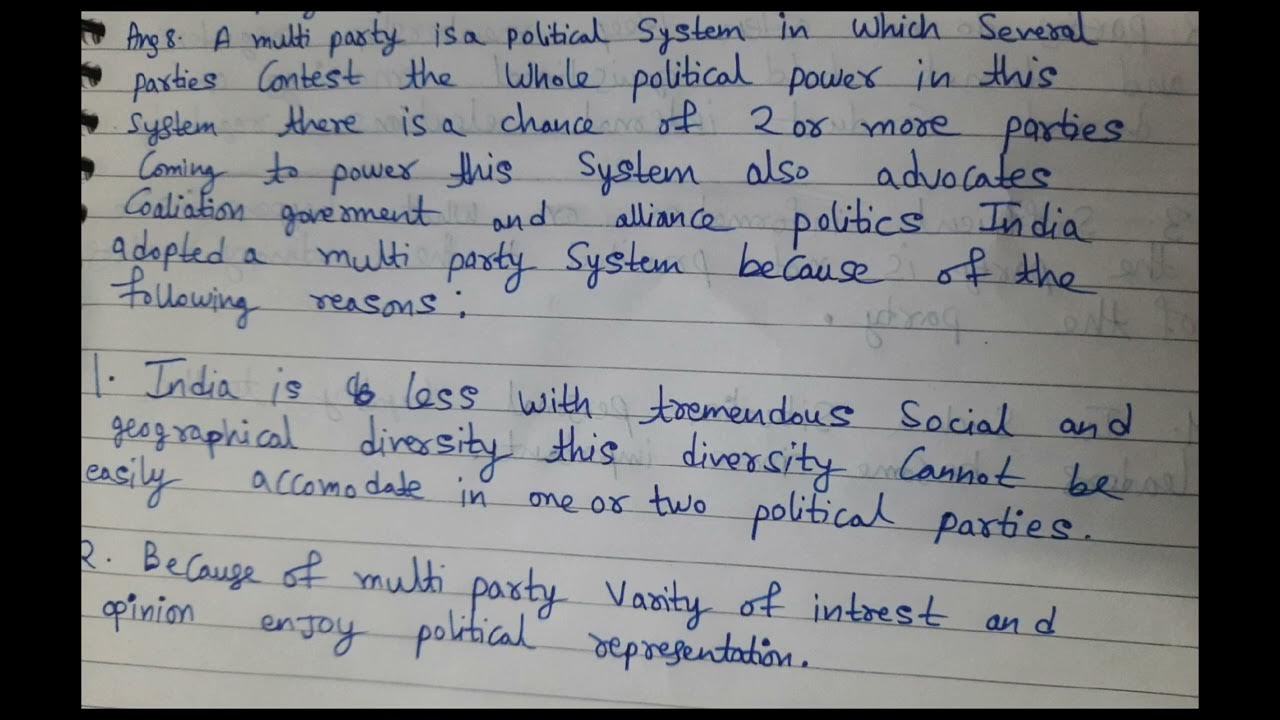 Ans 8. A multi party is a political System in which Several
parties Contest the Whole political power in this
System there is a chance of 2 or more parties
Coming to power this System also advocates
Coaliation goverment and alliance politics India
adopted a multi party System because of the
following reasons :
1. India is less with tremendous Social and
geographical diversity this diversity Cannot be
easily accomodate in one or two political parties.
2. Because of multi party Varity of intrest and
opinion enjoy political representation.